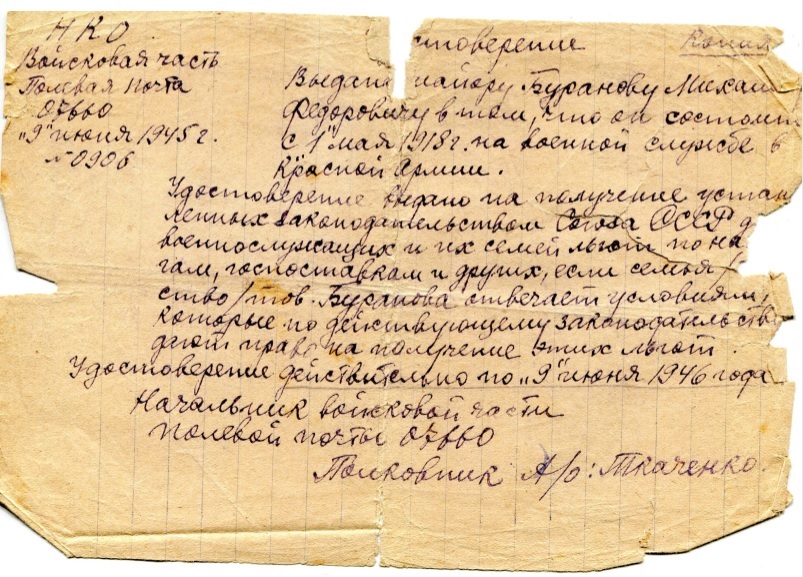 НКО
Войсковая часть
Полевая почта
07660
"9" июня 1945 г.
№ 0906
стоверение
Копия
Выдано майору Буранову Михаи
Федоровичу в том, что он состоит
с 1 мая 1918 г. на военной службе в
Красной Армии.
Удостоверение выдано на получение устан
ленных законодательством Союза ССР д
военнослужащих и их семей льгот по на
гам, госпоставкам и других, если семья /
ство/ тов. Буранова отвечает условиям,
которые по действующему законодательству
дают право на получение этих льгот.
Удостоверение действительно по "9" июня 1946 года
Начальник войсковой части
полевой почты 07660
Полковник А/о: Ткаченко.